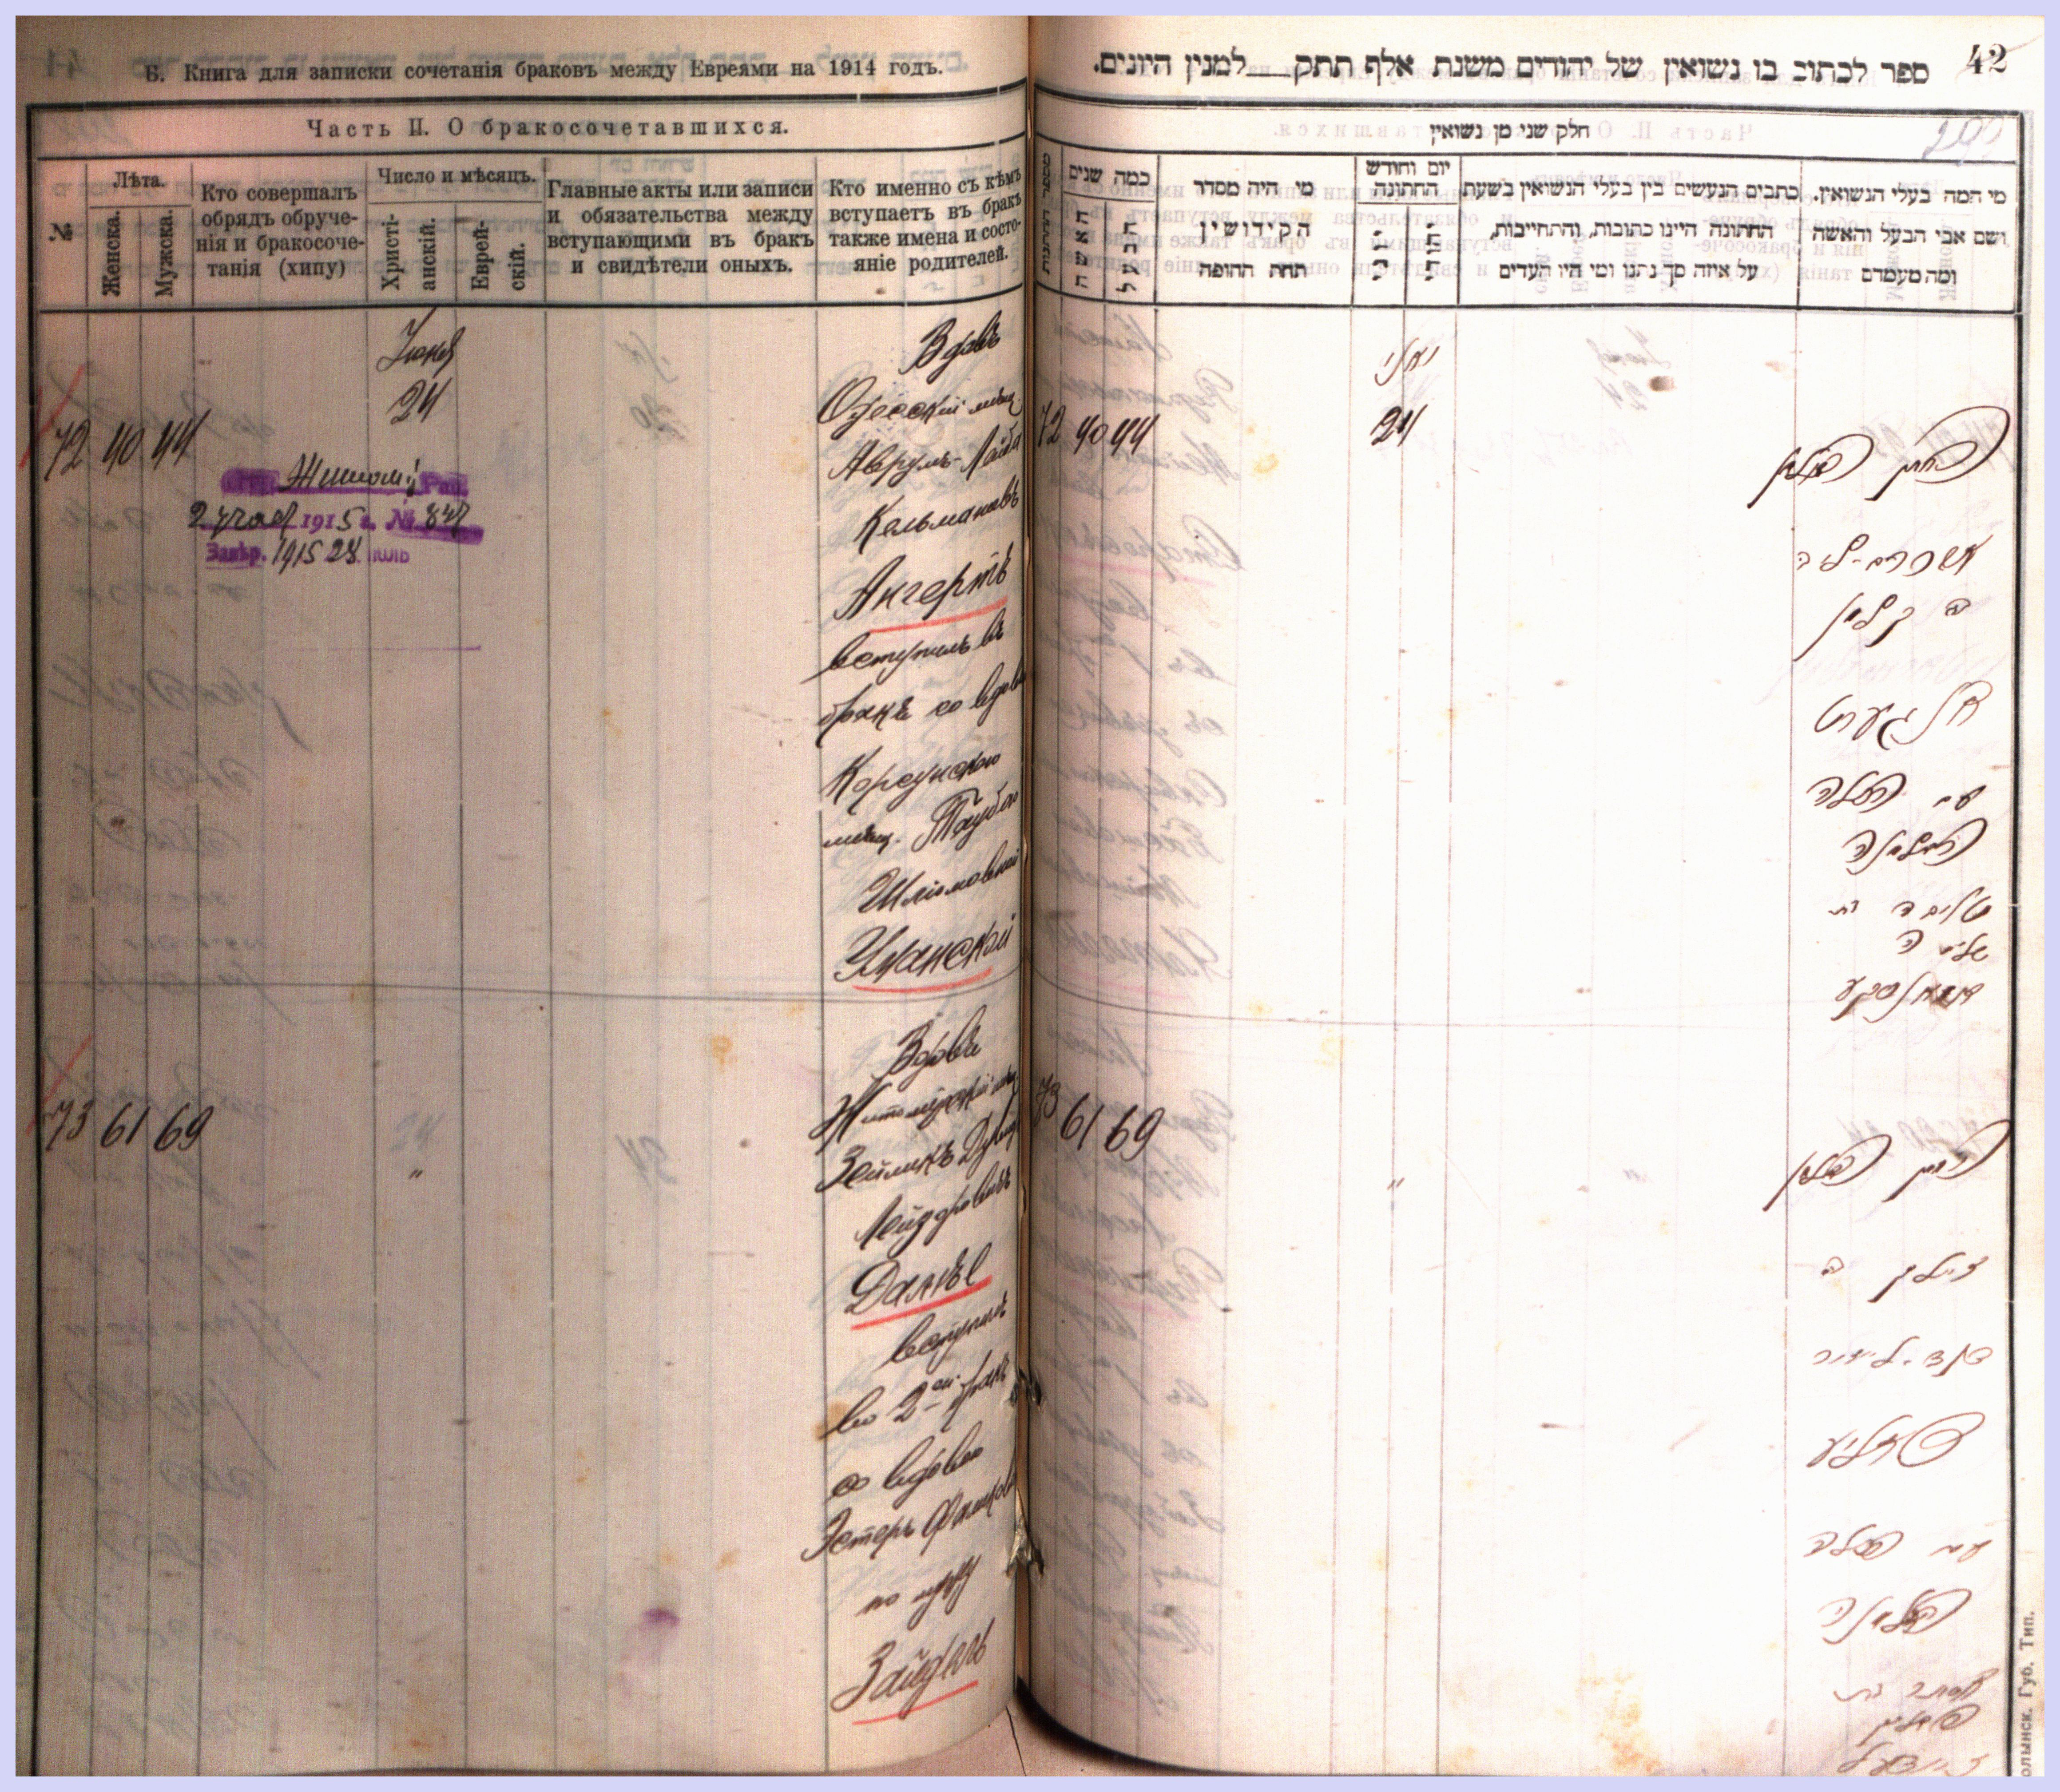 Б. Книга для записки сочетанія браковъ между Евреями на 1914 годъ.
Часть II. О бракосочетавшихся.
№
Лѣта.
Женска.
Мужска.
Кто совершалъ
обрядъ обруче-
нія и бракосоче-
танія (хипу)
Число и мѣсяцъ.
Христі-
анскій.
Еврей-
скій.
Главные акты или записи
и обязательства между
вступающими въ бракъ
и свидѣтели оныхъ.
Кто именно съ кѣмъ
вступаетъ въ бракъ
также имена и состо-
яніе родителей.
72 40 44
Іюня
24
Житом.
2 1915 г. №
Завѣр. 1915 28 іюль
Вдовъ
Одесскій мѣщ.
Аврумъ-Лейба
Кельмановъ
Ангертъ
вступилъ въ
бракъ со вдовою
Корсунскою
мѣщ. Таубою
Шліомовной
Уманской
73 61 69
"
Вдовъ
Житомірскій мѣщ.
Зейликъ Дувид
Лейзоровичъ
вступилъ
во 2ой бракъ
со вдовою
Эстеръ
по мужу
Зайдель
42
ספר לכתוב בו נשואין של יהודים משנת אלף תתק למנין היונים.
חלק שני מן נשואין
מספר החתונות
כמה שנים
האשה
הבעל
מי היה מסדר
הקידושין
תחת החופה
יום וחודש
החתונה
כתבים הנעשים בין בעלי הנשואין בשעת
החתונה היינו כתובות, והתחייבות,
על איזה סך נתנו ומי היו העדים
מי המה בעלי הנשואין.
ושם אבי הבעל והאשה
ומה מעמדם
72 40 44
יוני
24
החתן האלמן
ב קלמן
אנגערט
עם הכלה
האלמנה
טויבה בת
שלמה
73 61 69
"
החתן האלמן
זעליק ב
דוד-ליזור
עם הכלה
האלמנה
אסתר בת
זיידעל
олынск. Губ. Тип.